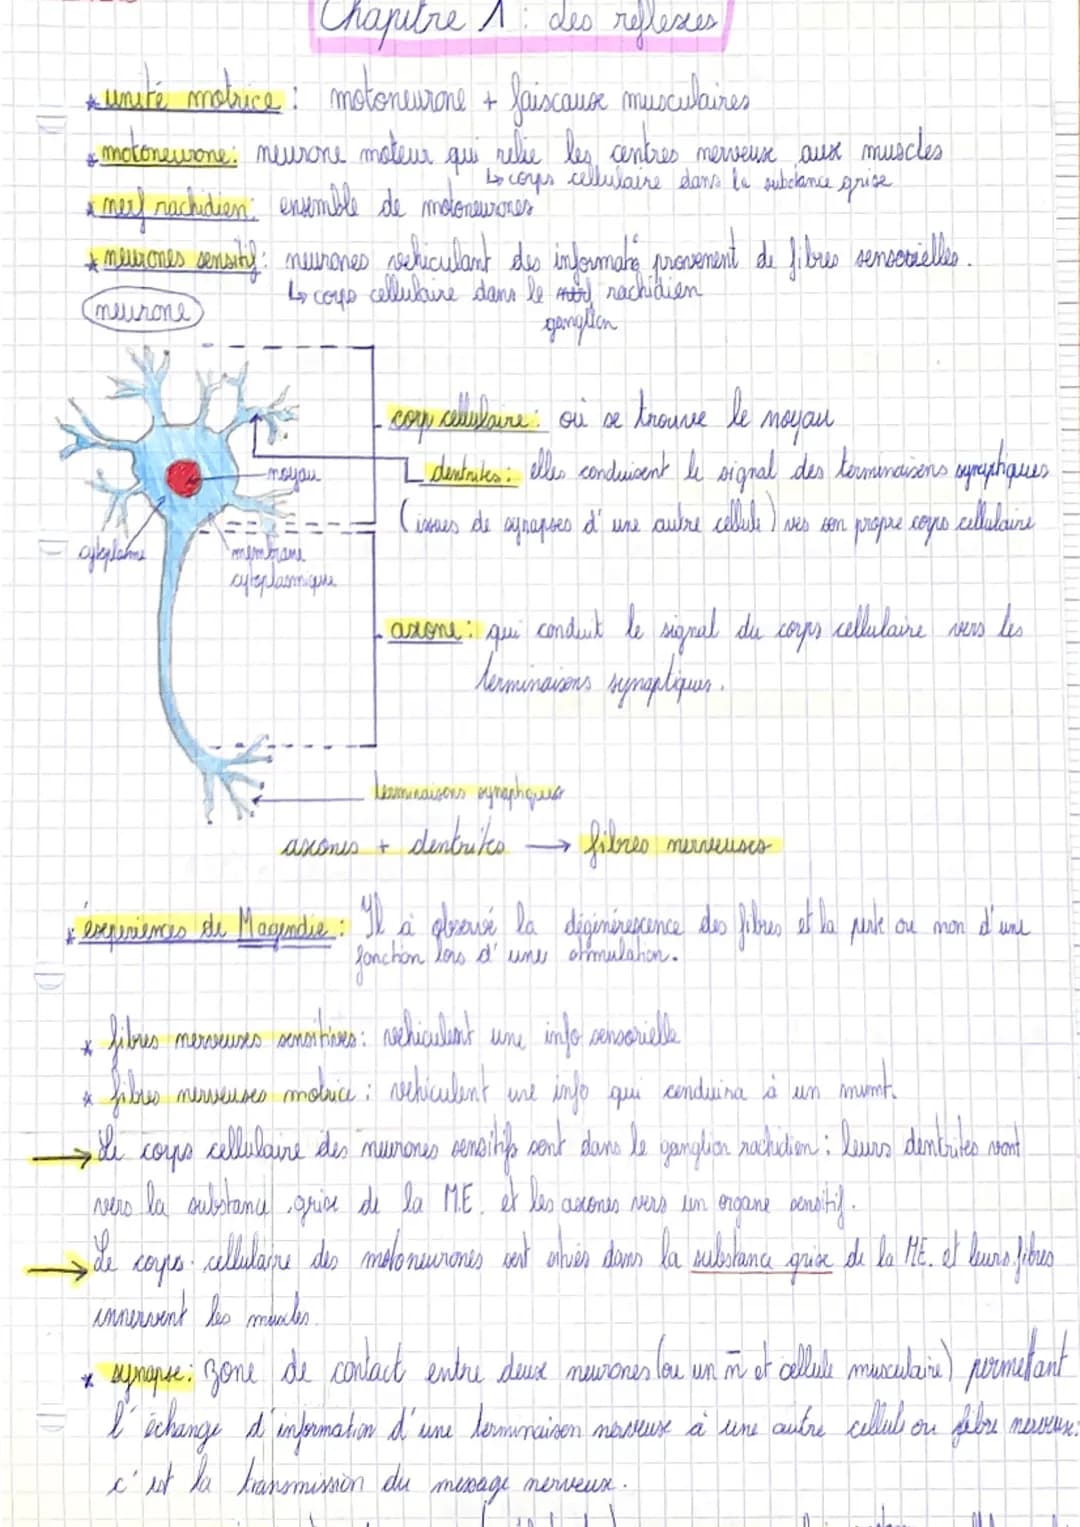 Chapitre 1 : des reflexes
* unité motrice : motoneurone + faisceaux musculaires
* motoneurone : neurone moteur qui relie les centres nerveux aux muscles
↳ corps cellulaire dans la substance grise
* nerf rachidien : ensemble de motoneurones
* neurones sensitif : neurones vehiculant des informat° provenent de fibres sensorielles.
↳ corps cellulaire dans le rachidien
ganglion
neurone
corp cellulaire : où se trouve le noyau
noyau
dentrites : elles conduisent le signal des terminaisons synaptiques
(issues de synapses d'une autre cellule) vers son propre corps cellulaire
cytoplasme
membrane
cytoplasmique
axone : qui conduit le signal du corps cellulaire vers les
terminaisons synaptiques.
terminaisons synaptiques
axones + dentrites → fibres nerveuses
* éxperiences de Magendie : Il a observé la dégénérescence des fibres et la perte ou non d'une
fonction lors d'unes stimulation.
* fibres nerveuses sensitives : vehiculent une info sensorielle
* fibres nerveuses motrice : vehiculent une info qui conduira à un mvmt.
→ Le corps cellulaire des neurones sensitifs sont dans le ganglion rachidien : leurs dentrites vont
vers la substance grise de la M.E. et les axones vers un organe sensitif.
→ Le corps cellulaire des motoneurones sont situés dans la substance grise de la ME. et leurs fibres
innervent les muscles.
* synapse : zone de contact entre deux neurones (ou un n̄ et cellule musculaire) permettant
l'échange d'information d'une terminaison nerveuse à une autre cellule ou fibre nerveuse :
c'est la transmission du message nerveux.